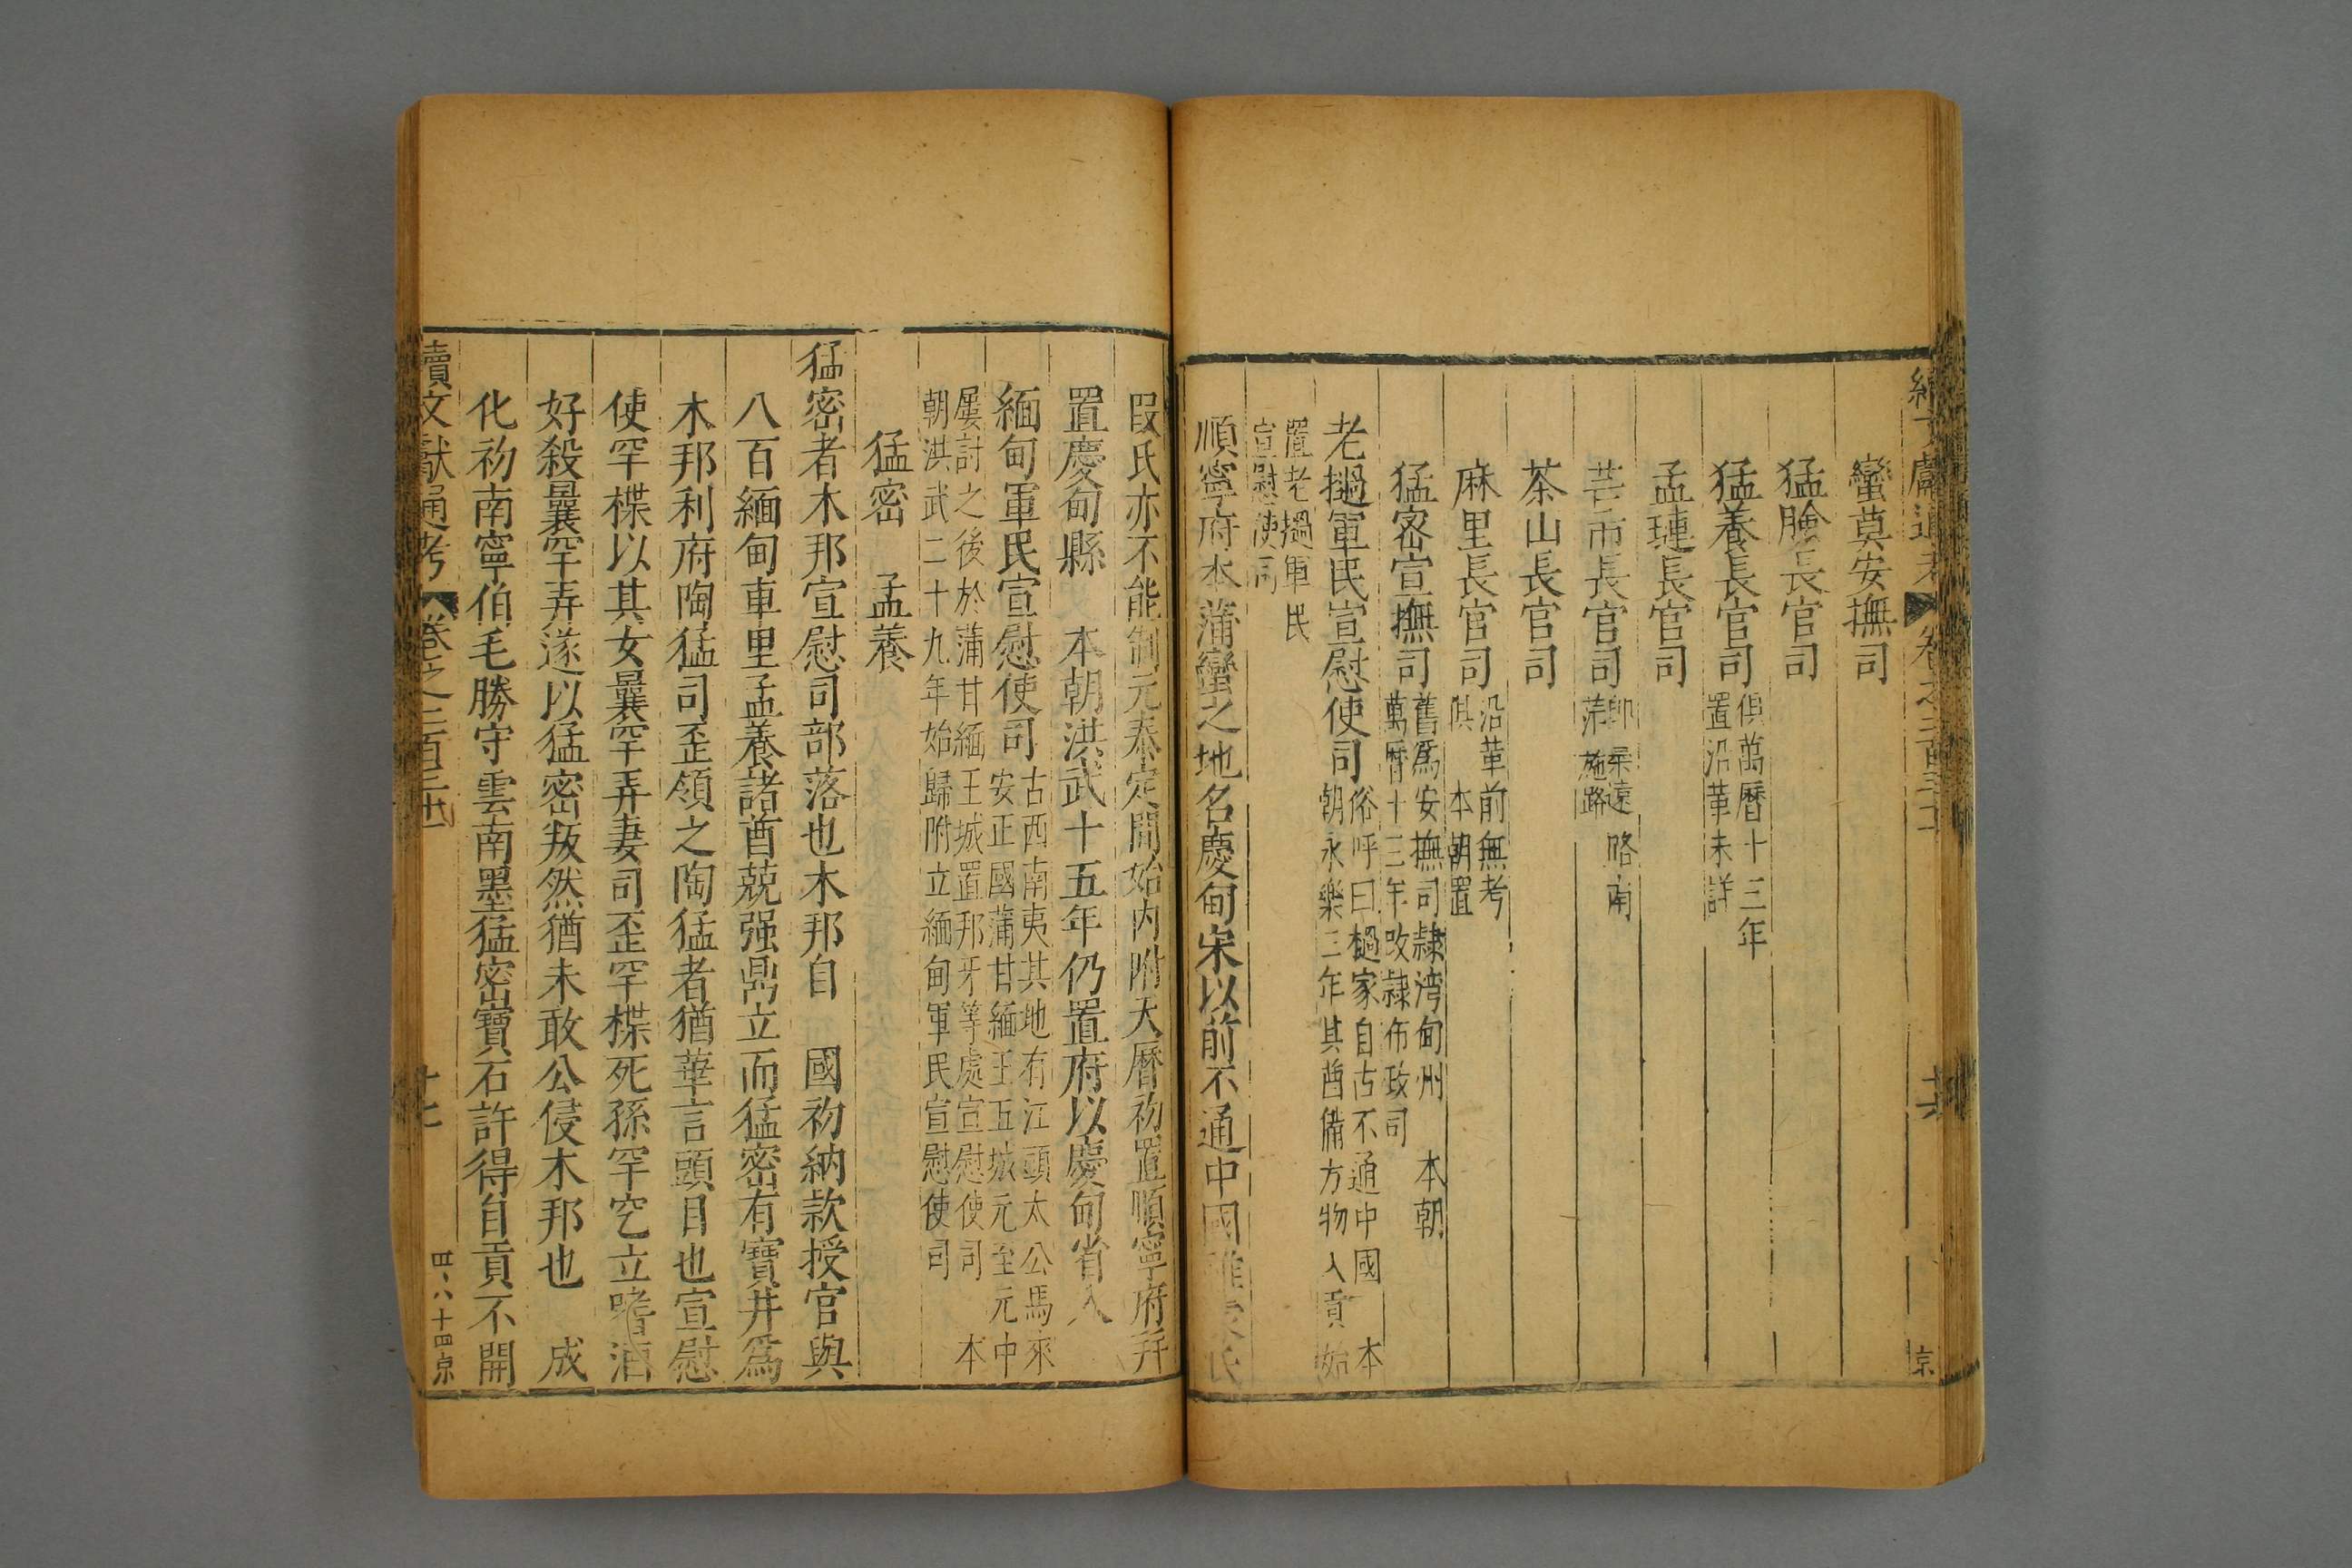 蠻莫安撫司
猛臉長官司
猛養長官司 俱萬曆十三年
置沿革未詳
孟璉長官司
芒市長官司
茶山長官司
麻里長官司 沿革前無考
俱 本朝置
猛密宣撫司 舊爲安撫司隷湾甸州 本朝
萬曆十三年改隷布政司
老撾軍民宣慰使司 俗呼曰撾家自古不通中國 本
朝永樂三年其酋備方物入貢始
置老撾軍民
宣慰使司
順寧府本蒲蠻之地名慶甸宋以前不通中國雖
段氏亦不能制元泰定間始内附天曆初置順寧府并
置慶甸縣 本朝洪武十五年仍置府以慶甸省入
緬甸軍民宣慰使司 古西南夷其地有江頭太公馬來
安正國蒲甘緬王五城元至元中
屢討之後於蒲甘緬王城置邦牙等處宣慰使司 本
朝洪武二十九年始歸附立緬甸軍民宣慰使司
猛密 孟養
猛密者木邦宣慰司部落也木邦自 國初納款授官與
八百緬甸車里孟養諸酋兢强鼎立而猛密有寶井爲
木邦利府陶猛司歪領之陶猛者猶華言頭目也宣慰
使罕楪以其女曩罕弄妻司歪罕楪死孫罕穵立嗜酒
好殺曩罕弄遂以猛密叛然猶未敢公侵木邦也 成
化初南寧伯毛勝守雲南墨猛密寶石許得自貢不開
續文獻通考 卷之二百三十
十七
四八十四京